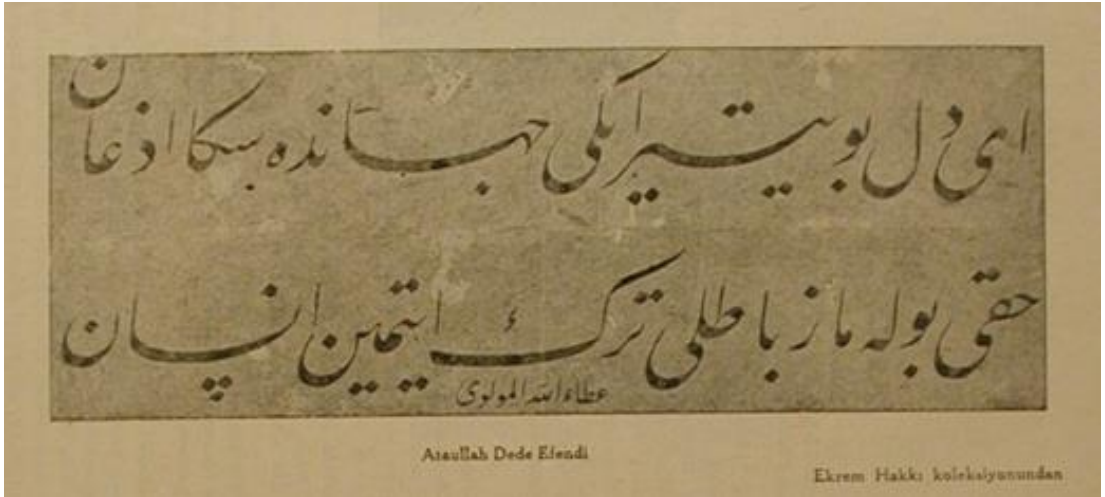 ای دل بو یتیر ایکی جهانده سکا اذعان
حقی بوله ماز باطلی ترك ایتمین انسان
عطاءالله المولوی
Ataullah Dede Efendi
Ekrem Hakkı koleksiyonundan